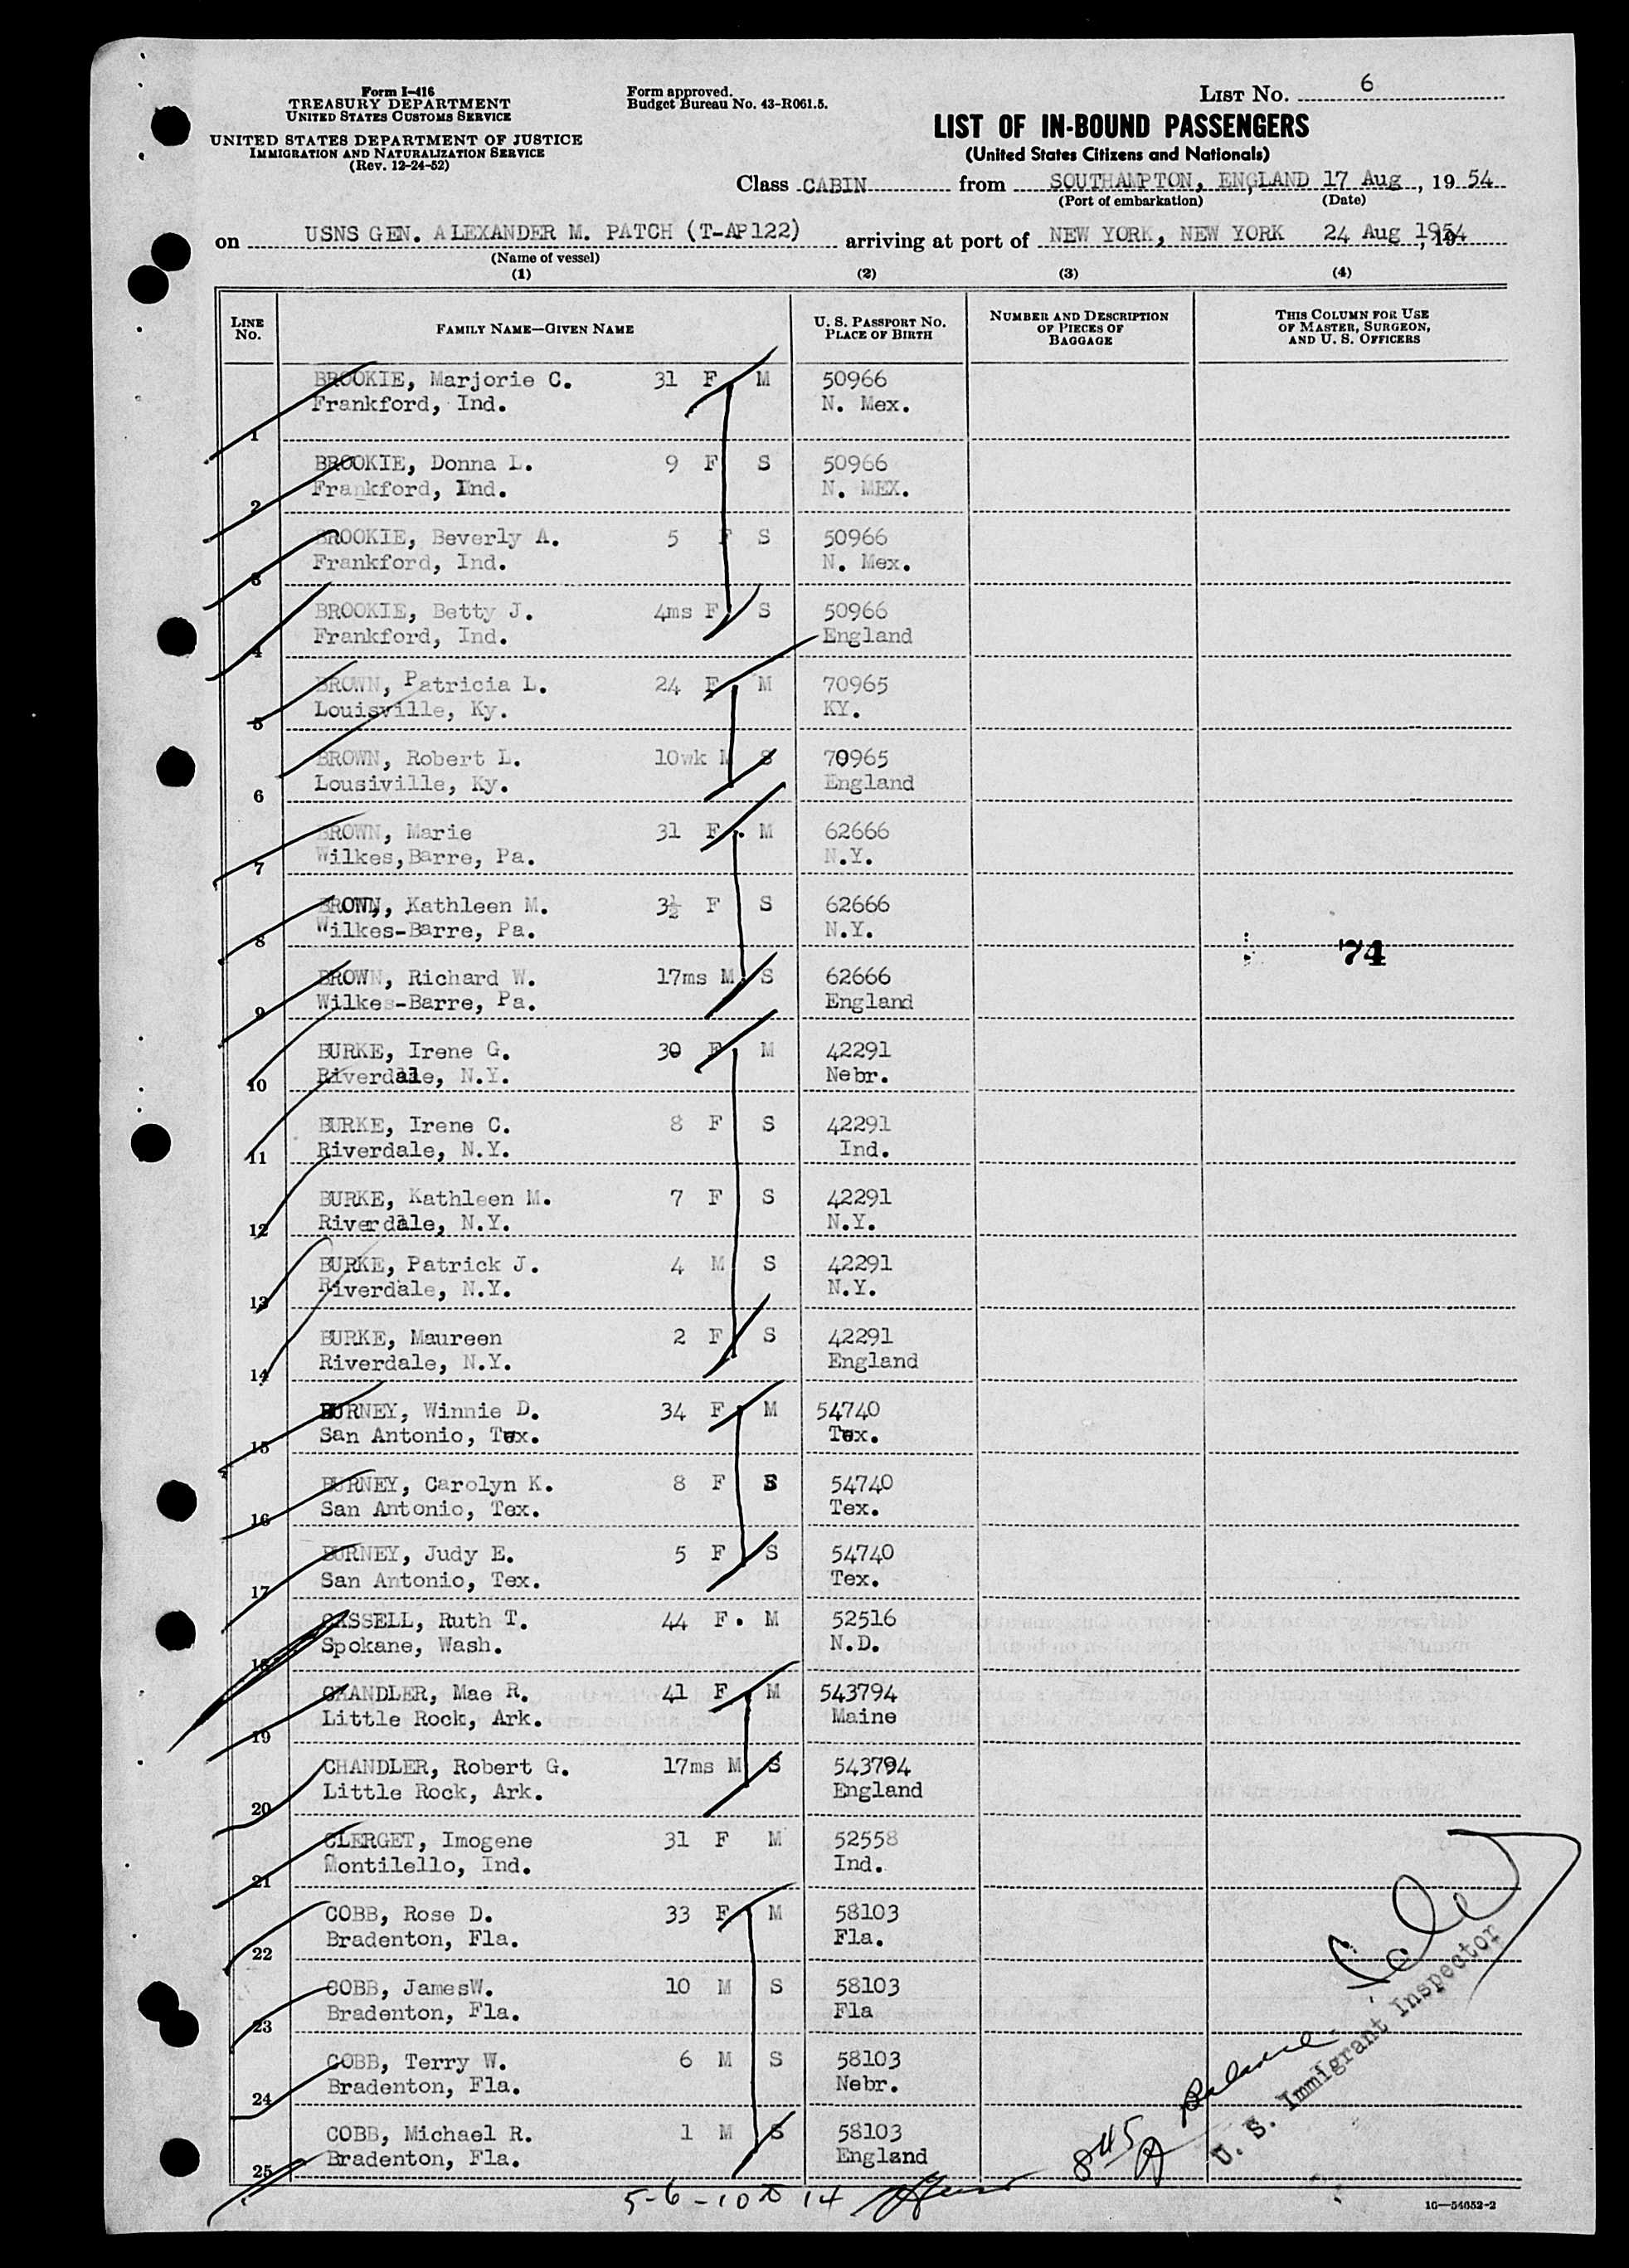 Form I-416
TREASURY DEPARTMENT
UNITED STATES CUSTOMS SERVICE
UNITED STATES DEPARTMENT OF JUSTICE
IMMIGRATION AND NATURALIZATION SERVICE
(Rev. 12-24-52)
Form approved.
Budget Bureau No. 43-R061.5.
LIST NO. 6
LIST OF IN-BOUND PASSENGERS
(United States Citizens and Nationals)
Class CABIN from SOUTHAMPTON, ENGLAND 17 Aug, 19 54
(Port of embarkation) (Date)
on USNS GEN. ALEXANDER M. PATCH (T-AP122) arriving at port of NEW YORK, NEW YORK 24 Aug 1954
(Name of vessel)
(1) (2) (3) (4)
LINE NO. FAMILY NAME—GIVEN NAME U. S. PASSPORT NO. PLACE OF BIRTH NUMBER AND DESCRIPTION OF PIECES OF BAGGAGE THIS COLUMN FOR USE OF MASTER, SURGEON, AND U. S. OFFICERS
BROOKIE, Marjorie C. 31 F M 50966
1 Frankford, Ind. N. Mex.
BROOKIE, Donna L. 9 F S 50966
2 Frankford, Ind. N. MEX.
BROOKIE, Beverly A. 5 F S 50966
3 Frankford, Ind. N. Mex.
BROOKIE, Betty J. 4ms F S 50966
4 Frankford, Ind. England
BROWN, Patricia L. 24 F M 70965
5 Louisville, Ky. KY.
BROWN, Robert L. 10wk M S 70965
6 Lousiville, Ky. England
BROWN, Marie 31 F M 62666
7 Wilkes,Barre, Pa. N.Y.
BROWN, Kathleen M. 3½ F S 62666
8 Wilkes-Barre, Pa. N.Y.
74
BROWN, Richard W. 17ms M S 62666
9 Wilkes-Barre, Pa. England
BURKE, Irene G. 30 F M 42291
10 Riverdale, N.Y. Nebr.
BURKE, Irene C. 8 F S 42291
11 Riverdale, N.Y. Ind.
BURKE, Kathleen M. 7 F S 42291
12 Riverdale, N.Y. N.Y.
BURKE, Patrick J. 4 M S 42291
13 Riverdale, N.Y. N.Y.
BURKE, Maureen 2 F S 42291
14 Riverdale, N.Y. England
BURNEY, Winnie D. 34 F M 54740
15 San Antonio, Tex. Tex.
BURNEY, Carolyn K. 8 F S 54740
16 San Antonio, Tex. Tex.
BURNEY, Judy E. 5 F S 54740
17 San Antonio, Tex. Tex.
CASSELL, Ruth T. 44 F M 52516
18 Spokane, Wash. N.D.
CHANDLER, Mae R. 41 F M 543794
19 Little Rock, Ark. Maine
CHANDLER, Robert G. 17ms M S 543794
20 Little Rock, Ark. England
CLERGET, Imogene 31 F M 52558
21 Montilello, Ind. Ind.
COBB, Rose D. 33 F M 58103
22 Bradenton, Fla. Fla.
COBB, JamesW. 10 M S 58103
23 Bradenton, Fla. Fla
COBB, Terry W. 6 M S 58103
24 Bradenton, Fla. Nebr.
COBB, Michael R. 1 M S 58103
25 Bradenton, Fla. England
845 A Balance
U. S. Immigrant Inspector
5-6-10 to 14
16—54652-2